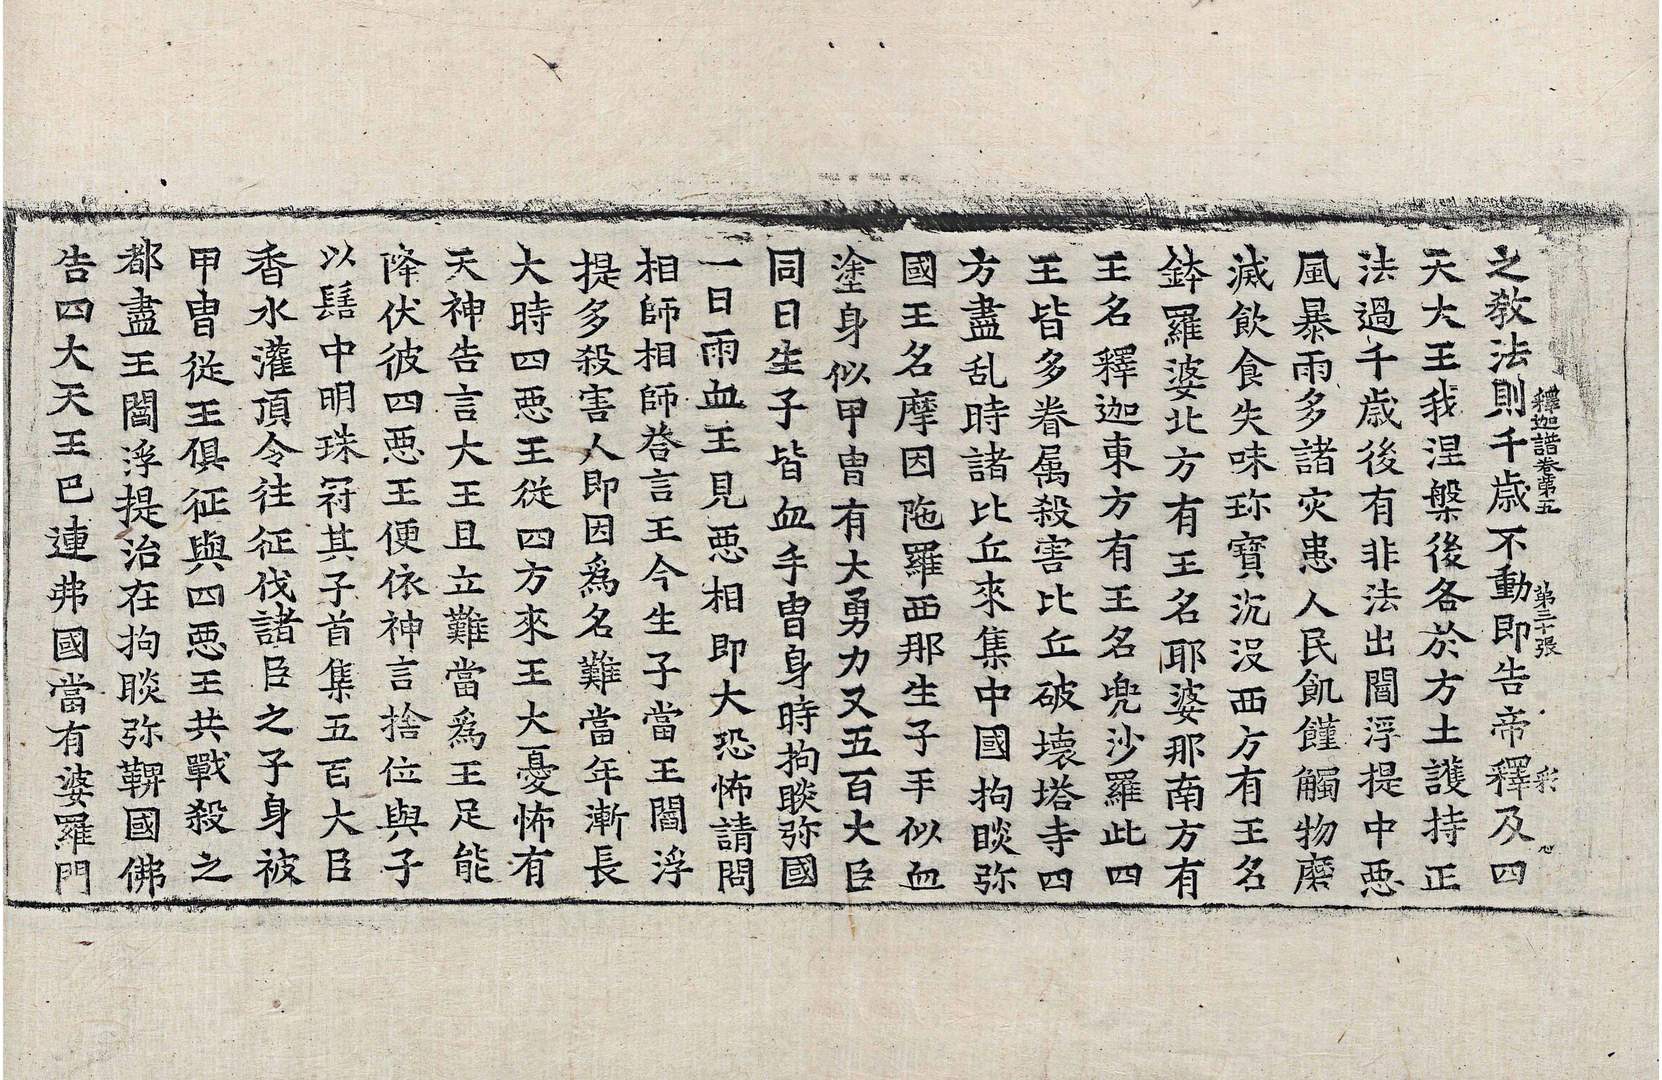 釋迦譜卷第五 第三十張 彩
之教法則千歲不動即告帝釋及四
天大王我涅槃後各於方土護持正
法過千歲後有非法出閻浮提中惡
風暴雨多諸灾患人民飢饉觸物磨
滅飲食失味珎寶沉没西方有王名
鉢羅婆北方有王名耶婆那南方有
王名釋迦東方有王名兜沙羅此四
王皆多眷属殺害比丘破壞塔寺四
方盡乱時諸比丘來集中國拘睒弥
國王名摩因陁羅西那生子手似血
塗身似甲冑有大勇力又五百大臣
同日生子皆血手冑身時拘睒弥國
一日雨血王見惡相即大恐怖請問
相師相師荅言王今生子當王閻浮
提多殺害人即因爲名難當年漸長
大時四惡王從四方來王大憂怖有
天神告言大王且立難當爲王足能
降伏彼四惡王便依神言捨位與子
以髻中明珠冠其子首集五百大臣
香水灌頂令往征伐諸臣之子身被
甲冑從王俱征與四惡王共戰殺之
都盡王閻浮提治在拘睒弥鞞國佛
告四大天王巴連弗國當有婆羅門